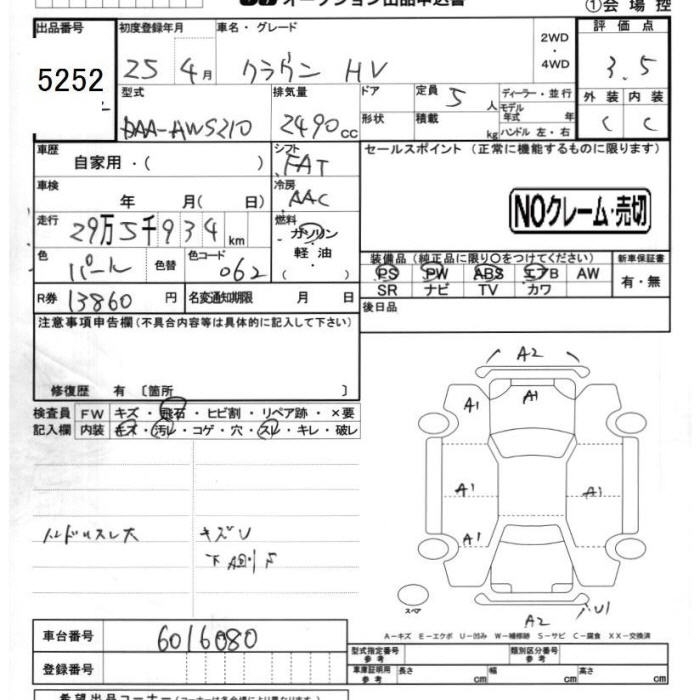 オークション出品申込書
①会場控
出品番号 初度登録年月 車名・グレード 2WD・4WD 評価点
5252 25 4月 クラウン HV 3.5
型式 排気量 ドア 定員 5人 ディーラー・並行 外装 内装
DAA-AWS210 2490cc 形状 積載 kg モデル年式 年 C C
ハンドル 左・右
車歴 シフト セールスポイント(正常に機能するものに限ります)
自家用・( ) FAT
車検 冷房
年 月( 日) AAC
NOクレーム・売切
走行 燃料
29万5千934km ガソリン
軽油
( ・ )
色 色替 色コード 装備品(純正品に限り○をつけてください) 新車保証書
パール 062 PS PW ABS エアB AW 有・無
R券 13860円 名変通知期限 月 日 SR ナビ TV カワ
注意事項申告欄(不具合内容等は具体的に記入して下さい) 後日品
修復歴 有〔箇所 〕
検査員 FW キズ・飛石・ヒビ割・リペア跡・×要
記入欄 内装 キズ・汚レ・コゲ・穴・スレ・キレ・破レ
A2
A1 A1
A1 A1
A1
A2 U1
ハンドルスレ大 キズU
スペア
A-キズ E-エクボ U-凹み W-補修跡 S-サビ C-腐食 XX-交換済
車台番号 6016080
登録番号
型式指定番号 参考 類別区分番号 参考
車庫証明用 参考 長さ cm 幅 cm 高さ cm
希望出品コーナー(コーナーは会場により異なります)